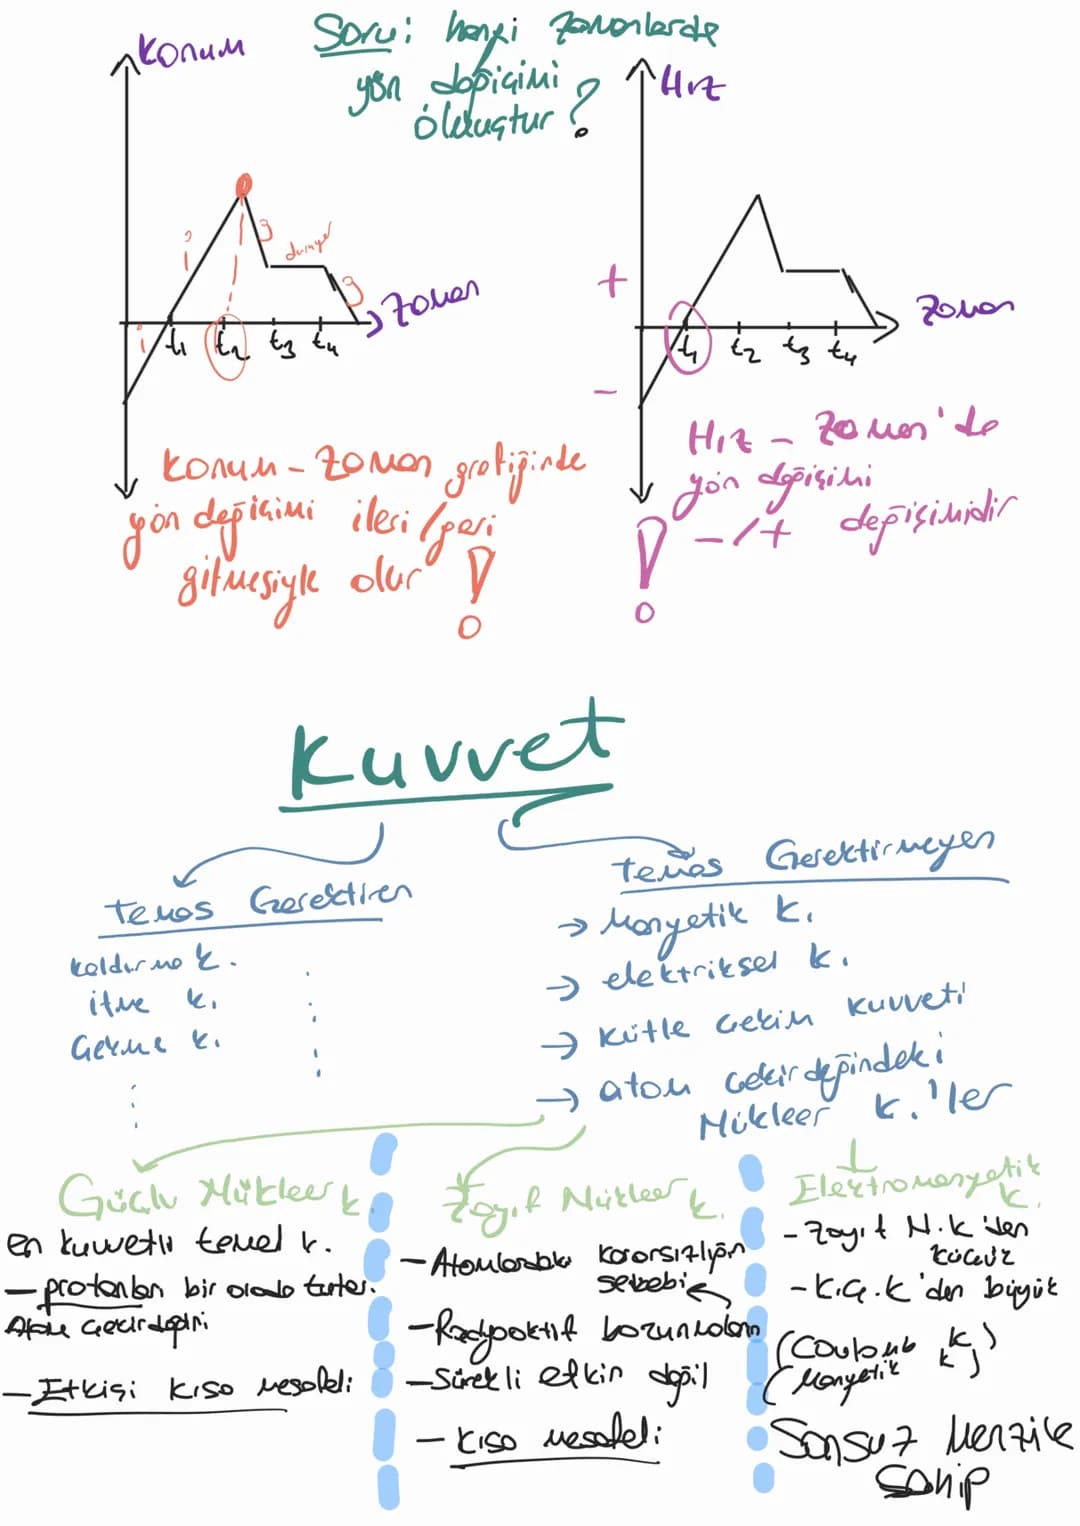 Soru: hangi zamanlarda
yön değişimi
olmuştur?
Konum
i
i
g
duruyor
g
Zaman
t1 t2 t3 t4
Konum - Zaman grafiğinde
yön değişimi ileri/geri
gitmesiyle olur !
Hız
+
-
Zaman
t1 t2 t3 t4
Hız - Zaman'da
yön değişimi
-/+ değişimidir
!
Kuvvet
Temas Gerektiren
kaldırma k.
itme k.
Çekme k.
Temas Gerektirmeyen
→ Manyetik k.
→ elektriksel k.
→ kütle çekim kuvveti
→ atom çekirdeğindeki
Nükleer k.'ler
Güçlü Nükleer k.
en kuvvetli temel k.
- protonları bir arada tutar.
Atom çekirdeğini
- Etkisi kısa mesafeli
Zayıf Nükleer k.
- Atomlardaki kararsızlığın
sebebi
- Radyoaktif bozunmaların
- Sürekli etkin değil
- kısa mesafeli
Elektromanyetik k.
- Zayıf N.k'den
küçük
- K.Ç.K'den büyük
(Coulomb k)
(Manyetik k)
Sonsuz Menzile
sahip